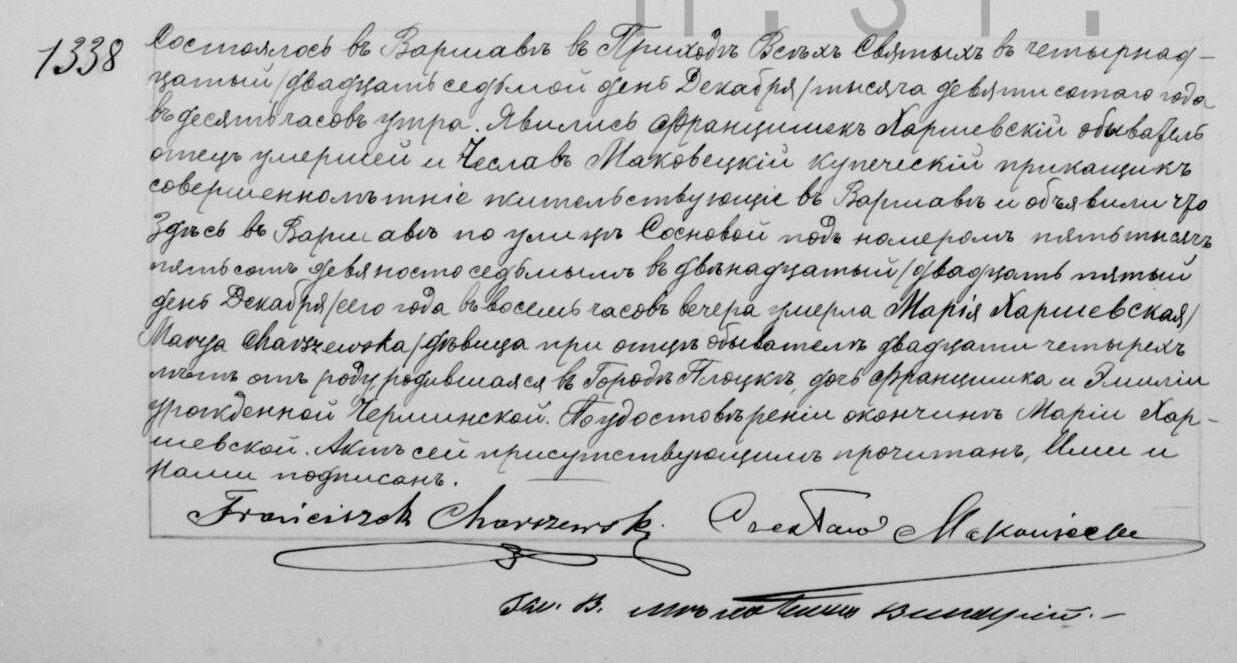 1338
Состоялось въ Варшавѣ въ Приходѣ Всѣхъ Святыхъ въ четырнад-
цатый /двадцать седьмой день Декабря/ тысяча девятисотаго года
въ десять часовъ утра. Явились Францишекъ Харшевскій обыватель
отецъ умершей и Чеславъ Маковецкій купеческій прикащикъ
совершеннолѣтніе жительствующіе въ Варшавѣ и объявили что
здѣсь въ Варшавѣ по улицѣ Сосновой подъ номеромъ пять тысячъ
пятьсотъ девяносто седьмымъ въ двѣнадцатый /двадцать пятый
день Декабря/ сего года въ восемь часовъ вечера умерла Марія Харшевская/
Marya Charszewska/ дѣвица при отцѣ обывателѣ двадцати четырехъ
лѣтъ отъ роду родившаяся въ Городѣ Плоцкѣ, дочь Францишка и Эмиліи
урожденной Черминской. По удостовѣреніи окончинѣ Маріи Хар-
шевской. Актъ сей присутствующимъ прочитанъ, Ими и
Нами подписанъ.
Franciszek Charszewski Czesław Makowiecki